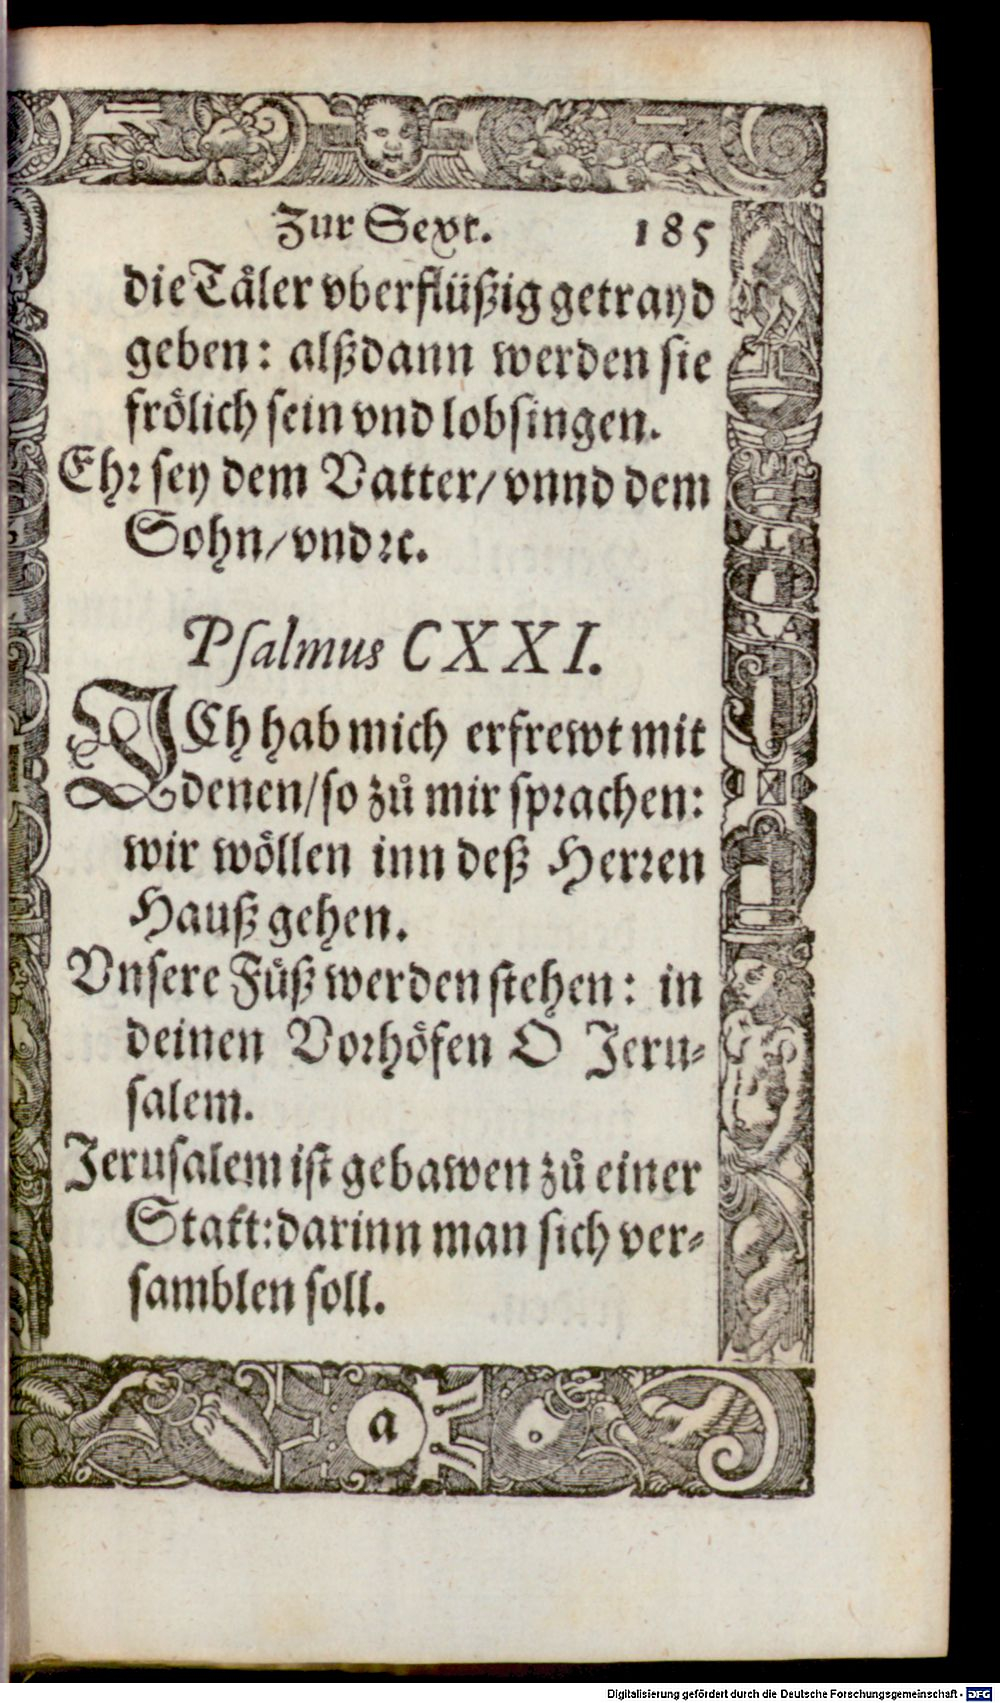 Zur Sext. 185
die Tåler vberflüßig getrayd
geben: alßdann werden sie
frölich sein vnd lobsingen.
Ehr sey dem Vatter/ vnnd dem
Sohn/ vnd ꝛc.
Psalmus CXXI.
ICh hab mich erfrewt mit
denen/ so zů mir sprachen:
wir wöllen inn deß Herren
Hauß gehen.
Vnsere Füß werden stehen: in
deinen Vorhöfen O Jeru-
salem.
Jerusalem ist gebawen zů einer
Statt: darinn man sich ver-
samblen soll.
RA
a
Digitalisierung gefördert durch die Deutsche Forschungsgemeinschaft - DFG